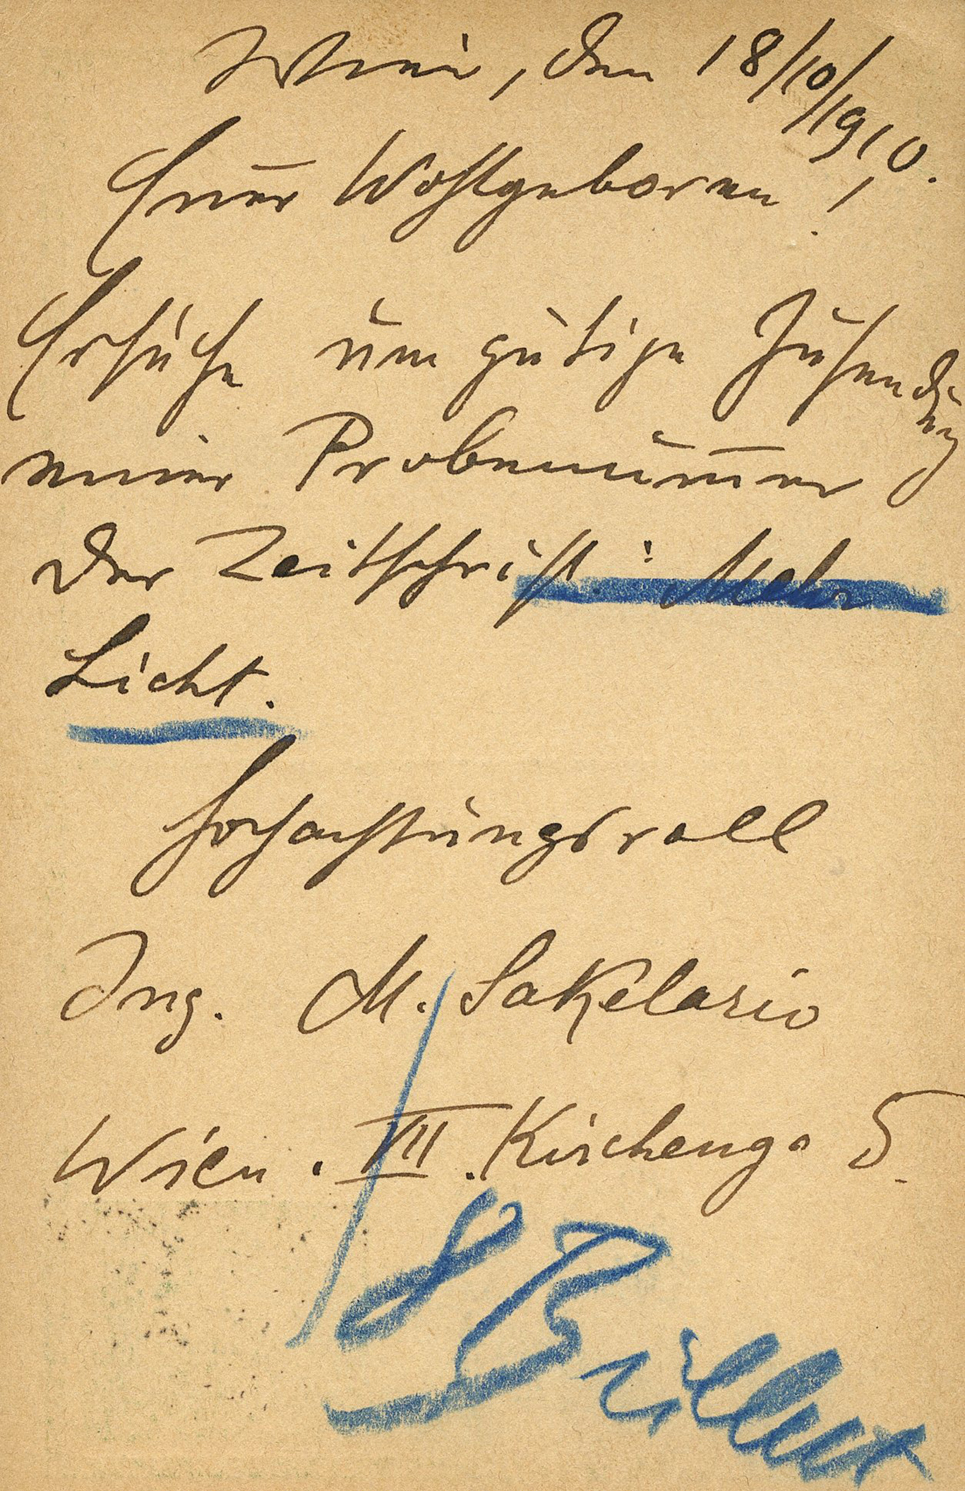 Wien, den 18/10/1910.
Euer Wohlgeboren!
Ersuche um gütige Zusendung
einer Probenum̅er
der Zeitschrift: Mehr
Licht.
Hochachtungsvoll
Ing. M. Sakelario
Wien. VII. Kircheng. 5.